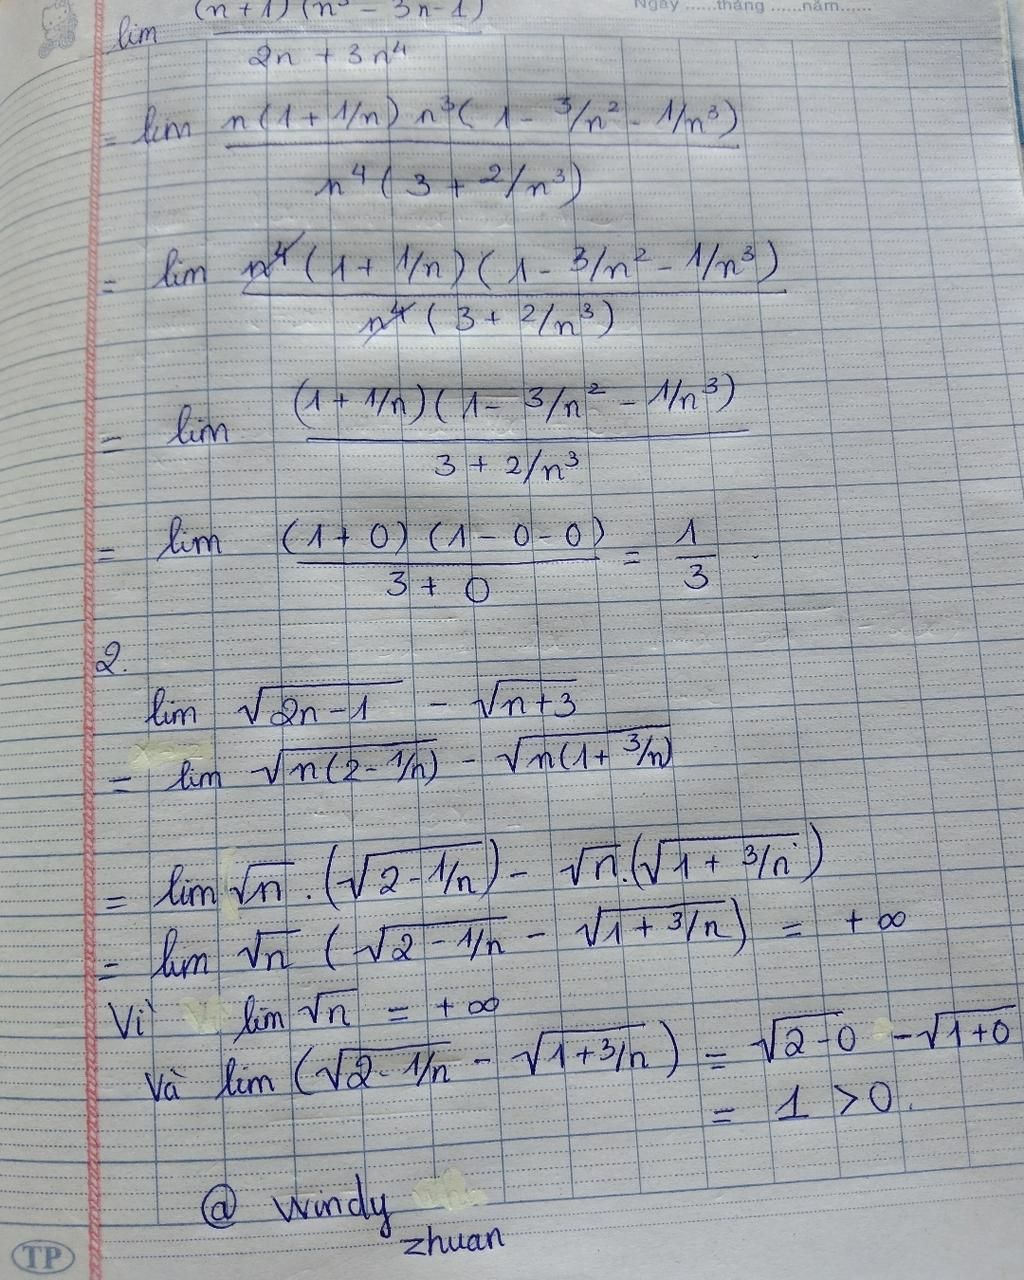 Ngày ......tháng ......năm......
lim (n+1)(n³ - 3n-1) / 2n + 3n⁴
= lim n(1+1/n) n³(1-3/n² - 1/n³) / n⁴(3+2/n³)
= lim n⁴(1+1/n)(1-3/n² - 1/n³) / n⁴(3+2/n³)
= lim (1+1/n)(1-3/n² - 1/n³) / 3+2/n³
= lim (1+0)(1-0-0) / 3+0 = 1/3
2.
lim √(2n-1) - √(n+3)
= lim √(n(2-1/n)) - √(n(1+3/n))
= lim √n . (√(2-1/n)) - √n.(√(1+3/n))
= lim √n (√(2-1/n) - √(1+3/n)) = +∞
Vì lim √n = +∞
Và lim (√(2-1/n) - √(1+3/n)) = √(2-0) - √(1+0)
= 1 >0.
@ windy
zhuan
TP